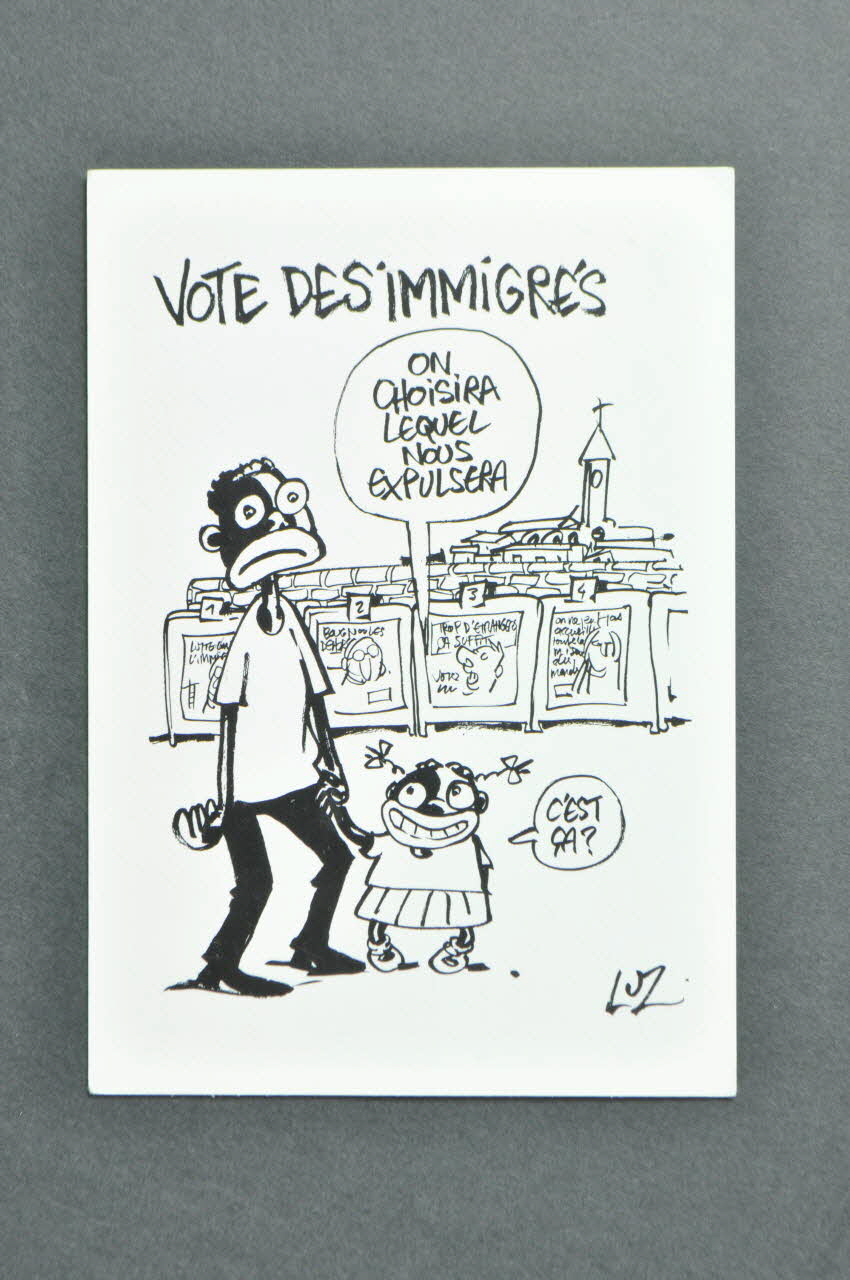 VOTE DES IMMIGRÉS
ON
CHOISIRA
LEQUEL
NOUS
EXPULSERA
1
2
3
4
LUTTE
L'IMMI
BOUGNOULES
DEHORS
TROP D'ETRANGERS
ÇA SUFFIT
VOTEZ
on ne peut pas
accueillir
toute la
misère
du
monde
C'EST
ÇA?
LUZ